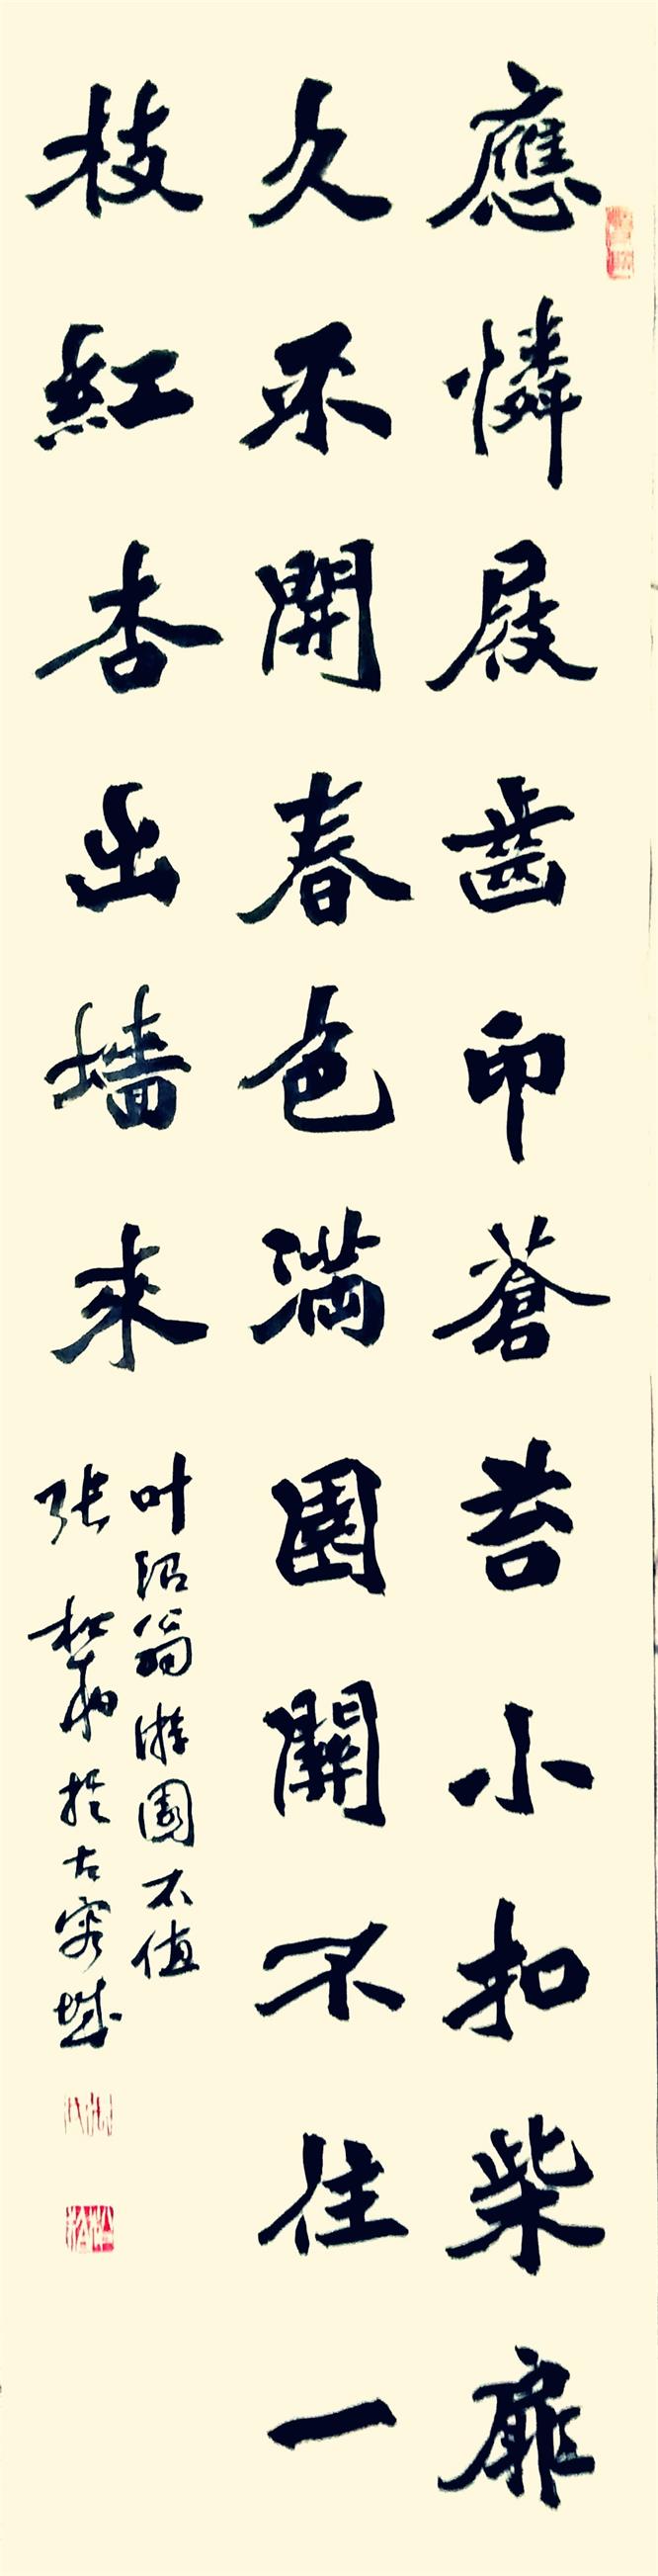 應憐屐齒印蒼苔小扣柴扉
久不開春色滿園關不住一
枝紅杏出墻來
叶紹翁游園不值
張松雨於古容城